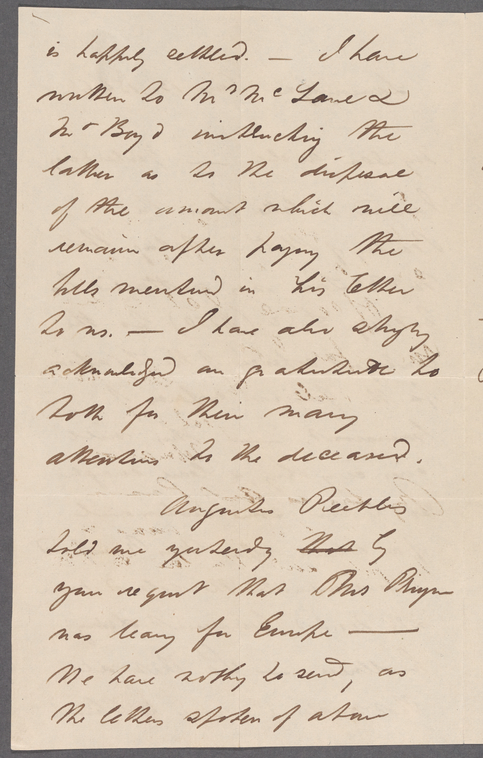 is happily settled. — I have
written to Mrs McLane &
Mr Boyd instructing the
latter as to the disposal
of the amount which will
remain after paying the
bills mentioned in his letter
to us. — I have also strongly
acknowledged our gratitude to
both for their many
attentions to the deceased.
Augustus Peebles
told me yesterday that by
your request that
was leaving for Europe —
We have nothing to send, as
the letters spoken of above